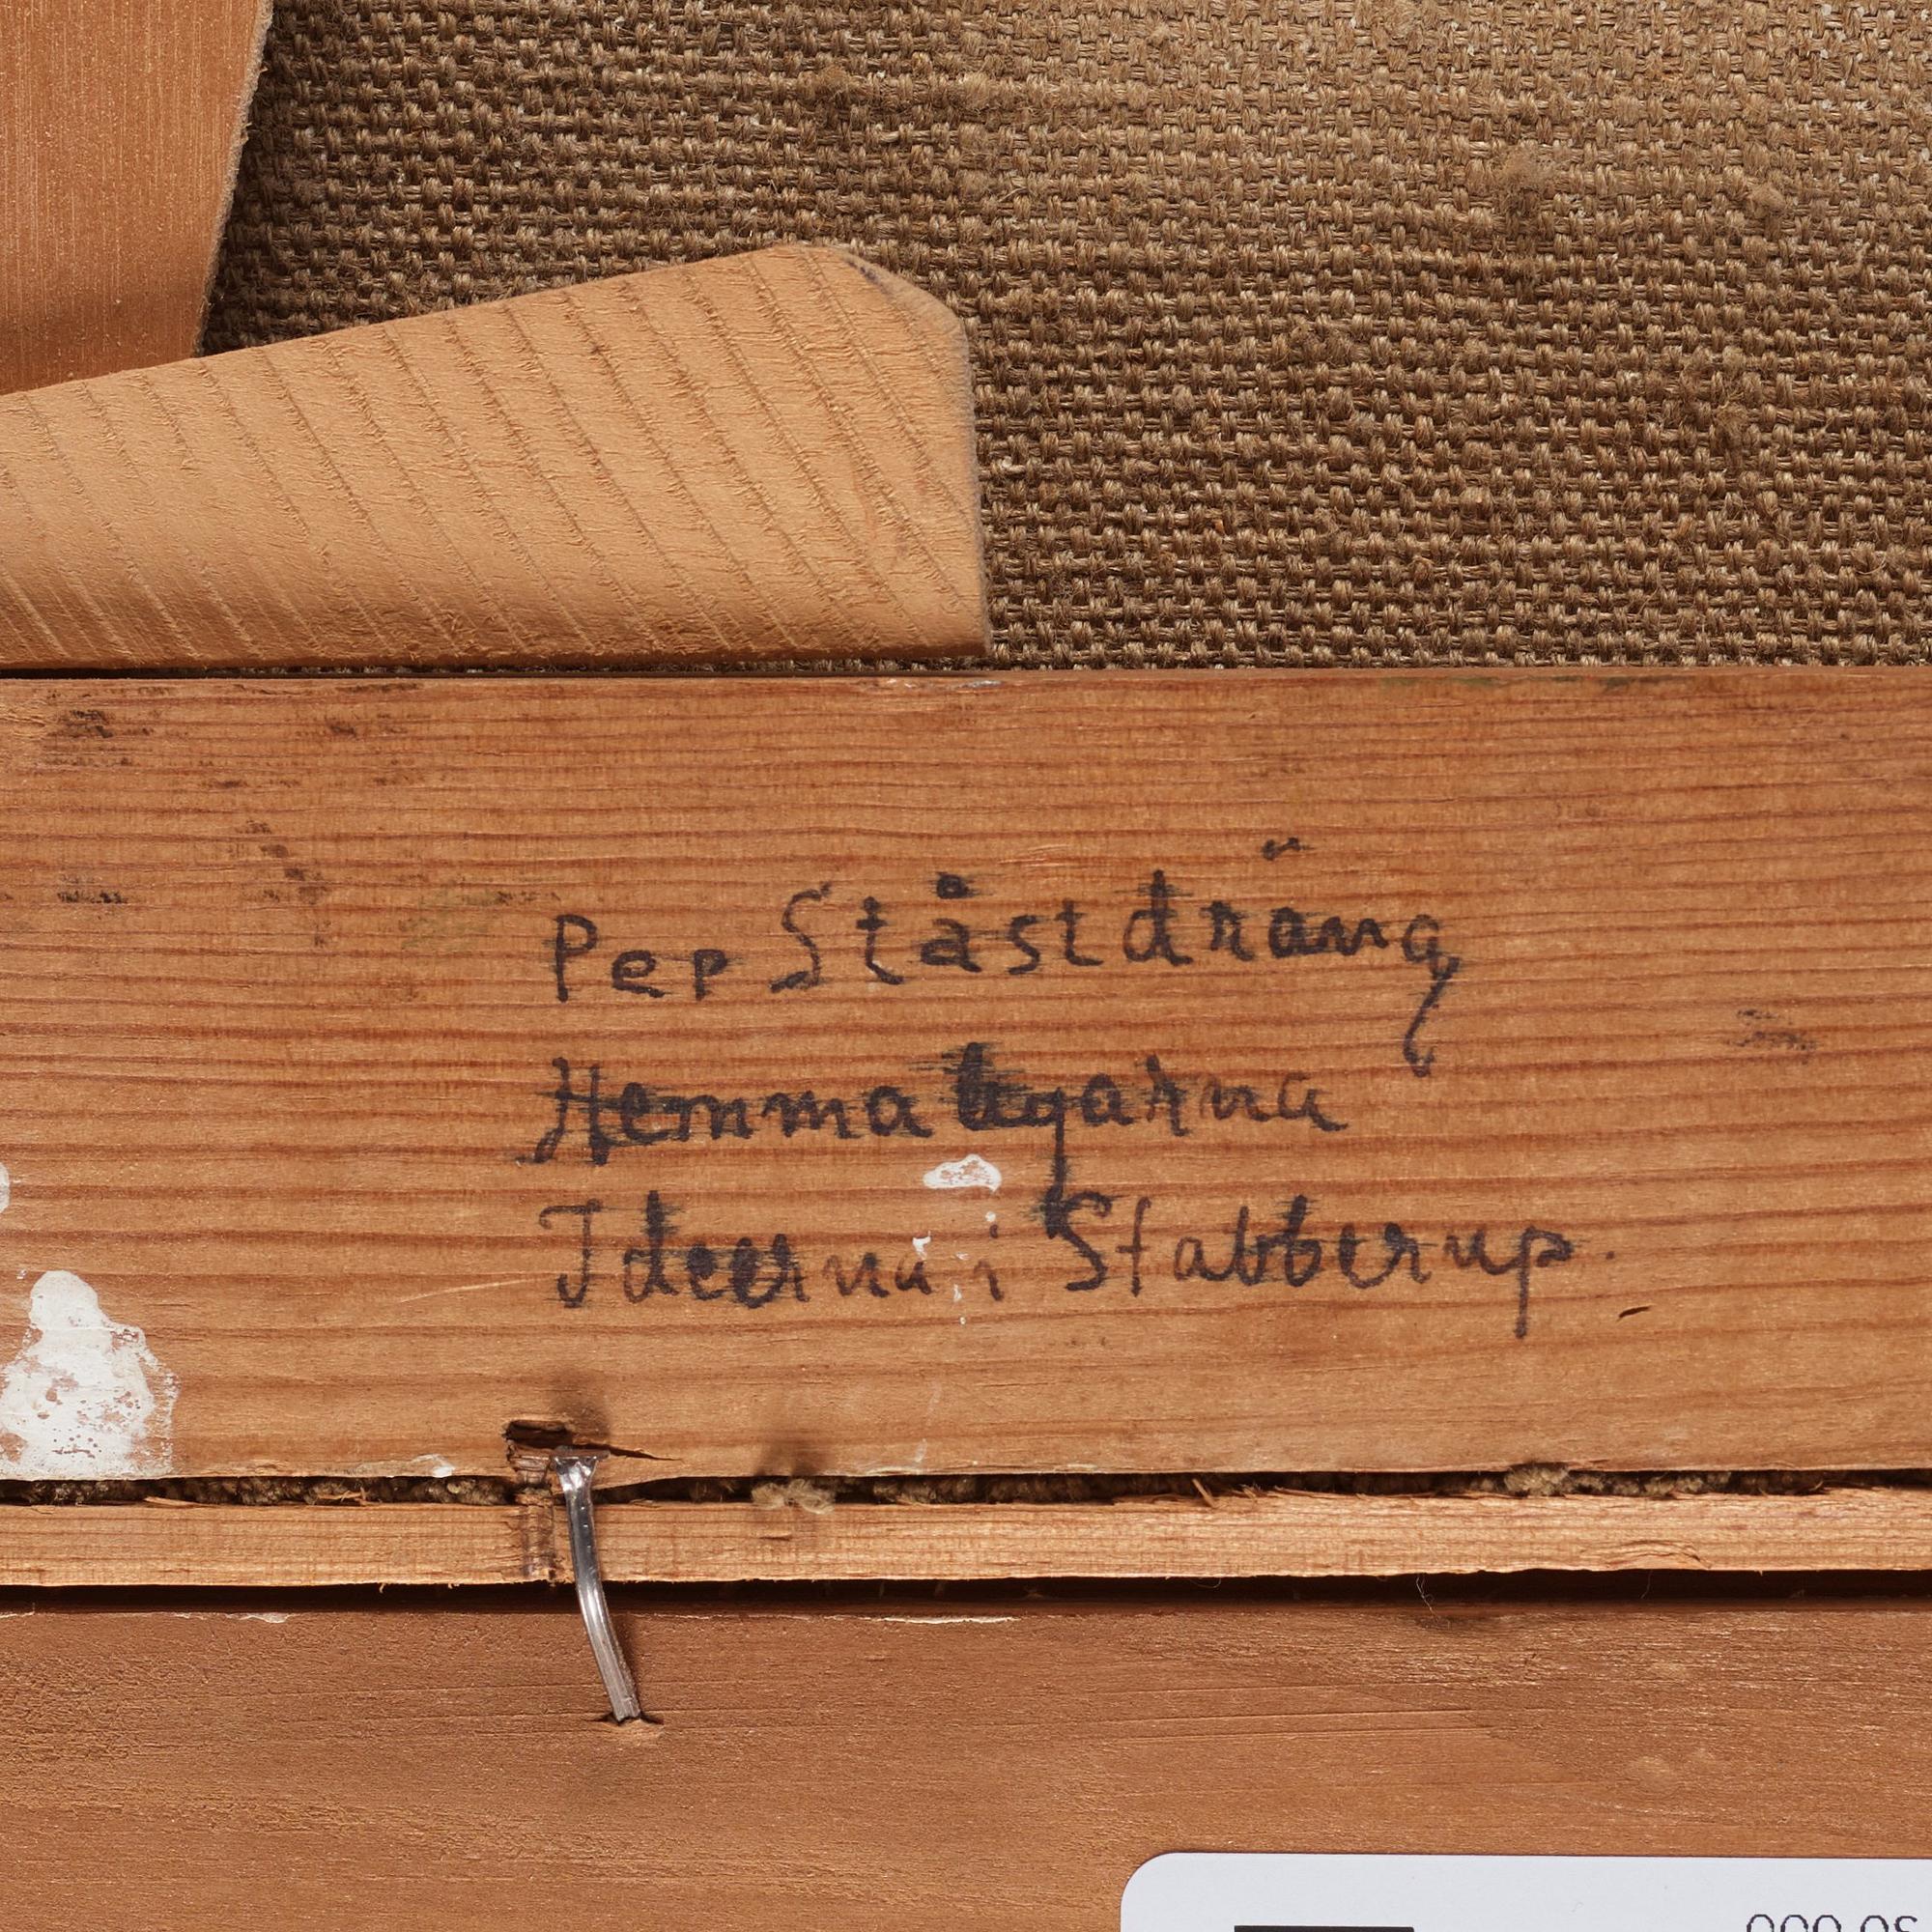 Per Ståstdräng
Hemma byarna
Ideerna i Stabberup.